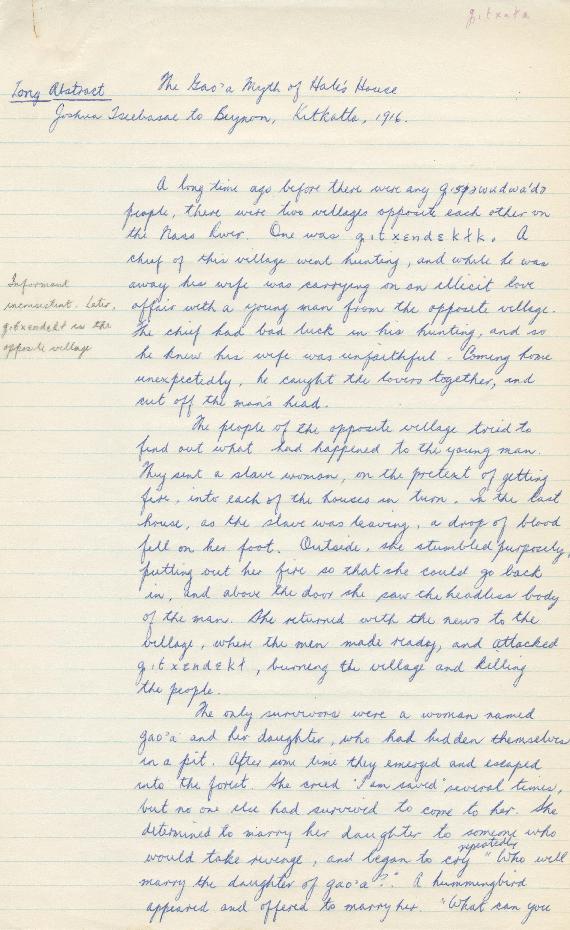 gitxała
Long Abstract
The Gao'a Myth of Hale's House
Joshua Tsebasae to Beynon, Kitkatla, 1916.
A long time ago before there were any gispəwudwa'də
people, there were two villages opposite each other on
the Nass River. One was g.ıtxɛndɛkłk. A
chief of this village went hunting, and while he was
away his wife was carrying on an illicit love
affair with a young man from the opposite village.
The chief had bad luck in his hunting, and so
he knew his wife was unfaithful. Coming home
unexpectedly, he caught the lovers together, and
cut off the man's head.
Informant
inconsistent. Later,
g.itxɛndɛkł is the
opposite village
The people of the opposite village tried to
find out what had happened to the young man.
They sent a slave woman, on the pretext of getting
fire, into each of the houses in turn. In the last
house, as the slave was leaving, a drop of blood
fell on her foot. Outside, she stumbled purposely,
putting out her fire so that she could go back
in, and above the door she saw the headless body
of the man. She returned with the news to the
village, where the men made ready, and attacked
g.ıtxɛndɛkł, burning the village and killing
the people.
The only survivors were a woman named
gao'a and her daughter, who had hidden themselves
in a pit. After some time they emerged and escaped
into the forest. She cried "I am saved" several times,
but no one else had survived to come to her. She
determined to marry her daughter to someone who
would take revenge, and began to cry repeatedly "Who will
marry the daughter of gao'a?" A hummingbird
appeared and offered to marry her. "What can you